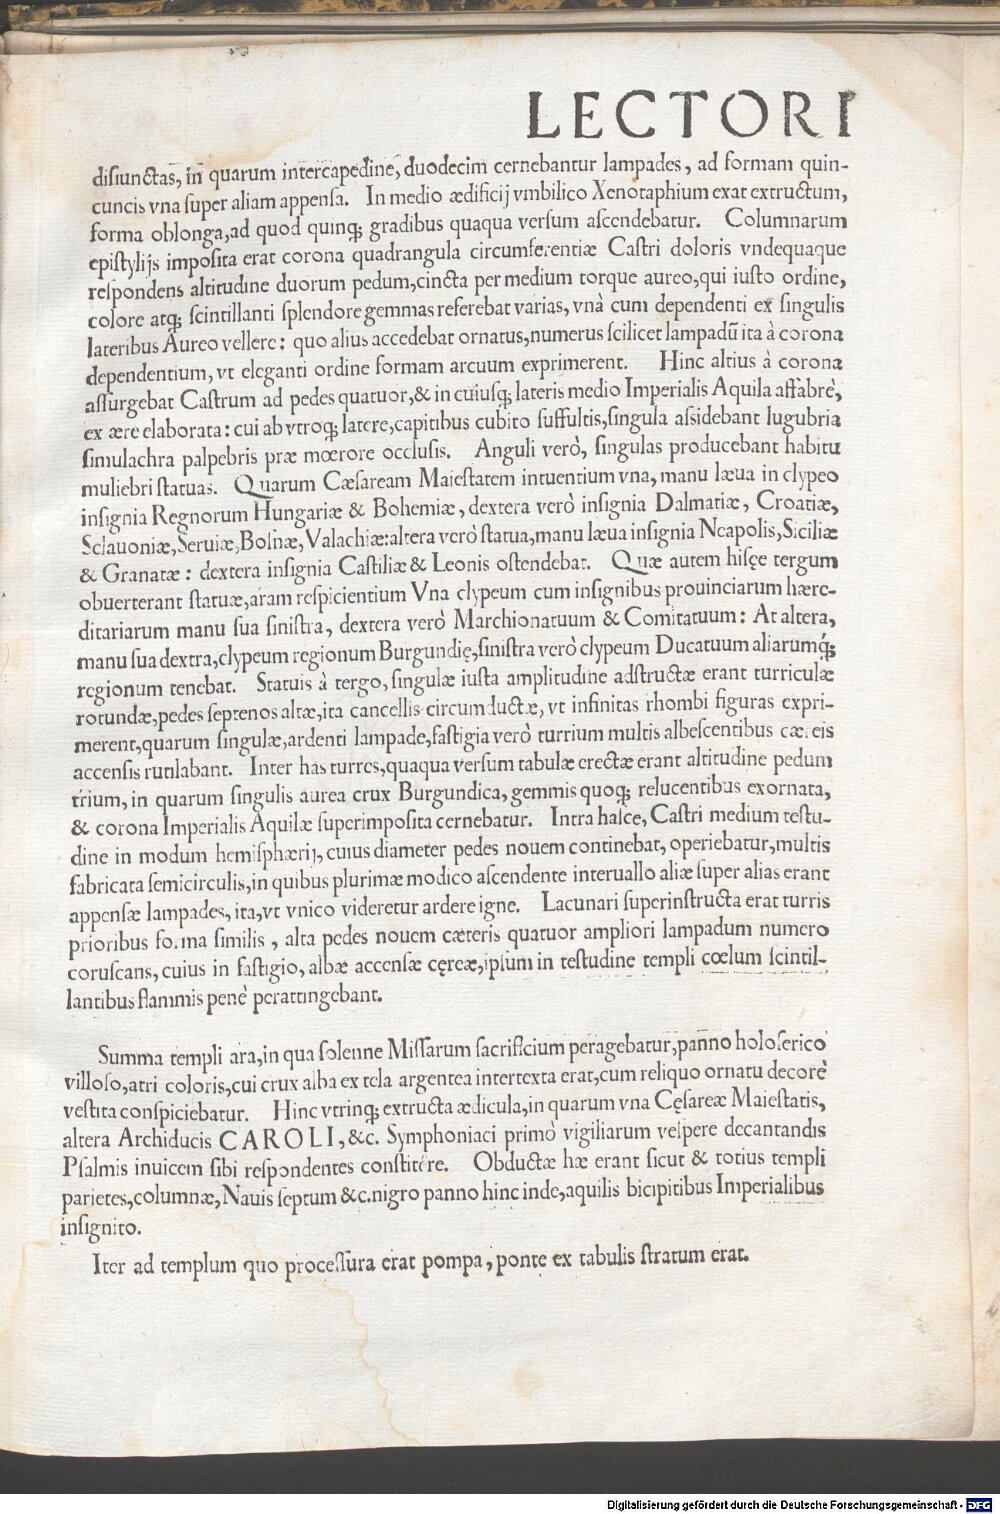 LECTORI
disiunctas, in quarum intercapedine, duodecim cernebantur lampades, ad formam quin-
cuncis vna super aliam appensa. In medio ædificij vmbilico Xenotaphium erat extructum,
forma oblonga, ad quod quinq; gradibus quaqua versum ascendebatur. Columnarum
epistylijs imposita erat corona quadrangula circumferentiæ Castri doloris vndequaque
respondens altitudine duorum pedum, cincta per medium torque aureo, qui iusto ordine,
colore atq; scintillanti splendore gemmas referebat varias, vnà cum dependenti ex singulis
lateribus Aureo vellere: quo alius accedebat ornatus, numerus scilicet lampadũ ita à corona
dependentium, vt eleganti ordine formam arcuum exprimerent. Hinc altius à corona
assurgebat Castrum ad pedes quatuor, & in cuiusq; lateris medio Imperialis Aquila affabrè,
ex ære elaborata: cui ab vtroq; latere, capitibus cubito suffultis, singula assidebant lugubria
simulachra palpebris præ mœrore occlusis. Anguli verò, singulas producebant habitu
muliebri statuas. Quarum Cæsaream Maiestatem intuentium vna, manu læua in clypeo
insignia Regnorum Hungariæ & Bohemiæ, dextera verò insignia Dalmatiæ, Croatiæ,
Sclauoniæ, Seruiæ, Bosnæ, Valachiæ: altera verò statua, manu læua insignia Neapolis, Siciliæ
& Granatæ: dextera insignia Castiliæ & Leonis ostendebat. Quæ autem hisçe tergum
obuerterant statuæ, aram respicientium Vna clypeum cum insignibus prouinciarum hære-
ditariarum manu sua sinistra, dextera verò Marchionatuum & Comitatuum: At altera,
manu sua dextra, clypeum regionum Burgundię, sinistra verò clypeum Ducatuum aliarumq́;
regionum tenebat. Statuis à tergo, singulæ iusta amplitudine adstructæ erant turriculæ
rotundæ, pedes septenos altæ, ita cancellis circumductæ, vt infinitas rhombi figuras expri-
merent, quarum singulæ, ardenti lampade, fastigia verò turrium multis albescentibus cæreis
accensis rutilabant. Inter has turres, quaqua versum tabulæ erectæ erant altitudine pedum
trium, in quarum singulis aurea crux Burgundica, gemmis quoq; relucentibus exornata,
& corona Imperialis Aquilæ superimposita cernebatur. Intra hasce, Castri medium testu-
dine in modum hemisphærij, cuius diameter pedes nouem continebat, operiebatur, multis
fabricata semicirculis, in quibus plurimæ modico ascendente interuallo aliæ super alias erant
appensæ lampades, ita, vt vnico videretur ardere igne. Lacunari superinstructa erat turris
prioribus forma similis, alta pedes nouem cæteris quatuor ampliori lampadum numero
coruscans, cuius in fastigio, albæ accensæ cęreæ, ipsum in testudine templi cœlum scintil-
lantibus flammis penè perattingebant.
Summa templi ara, in qua solenne Missarum sacrificium peragebatur, panno holoserico
villoso, atri coloris, cui crux alba ex tela argentea intertexta erat, cum reliquo ornatu decorè
vestita conspiciebatur. Hinc vtrinq; extructa ædicula, in quarum vna Cęsareæ Maiestatis,
altera Archiducis CAROLI, &c. Symphoniaci primò vigiliarum vespere decantandis
Psalmis inuicem sibi respondentes constitêre. Obductæ hæ erant sicut & totius templi
parietes, columnæ, Nauis septum &c. nigro panno hinc inde, aquilis bicipitibus Imperialibus
insignito.
Iter ad templum quo processura erat pompa, ponte ex tabulis stratum erat.
Digitalisierung gefördert durch die Deutsche Forschungsgemeinschaft - DFG